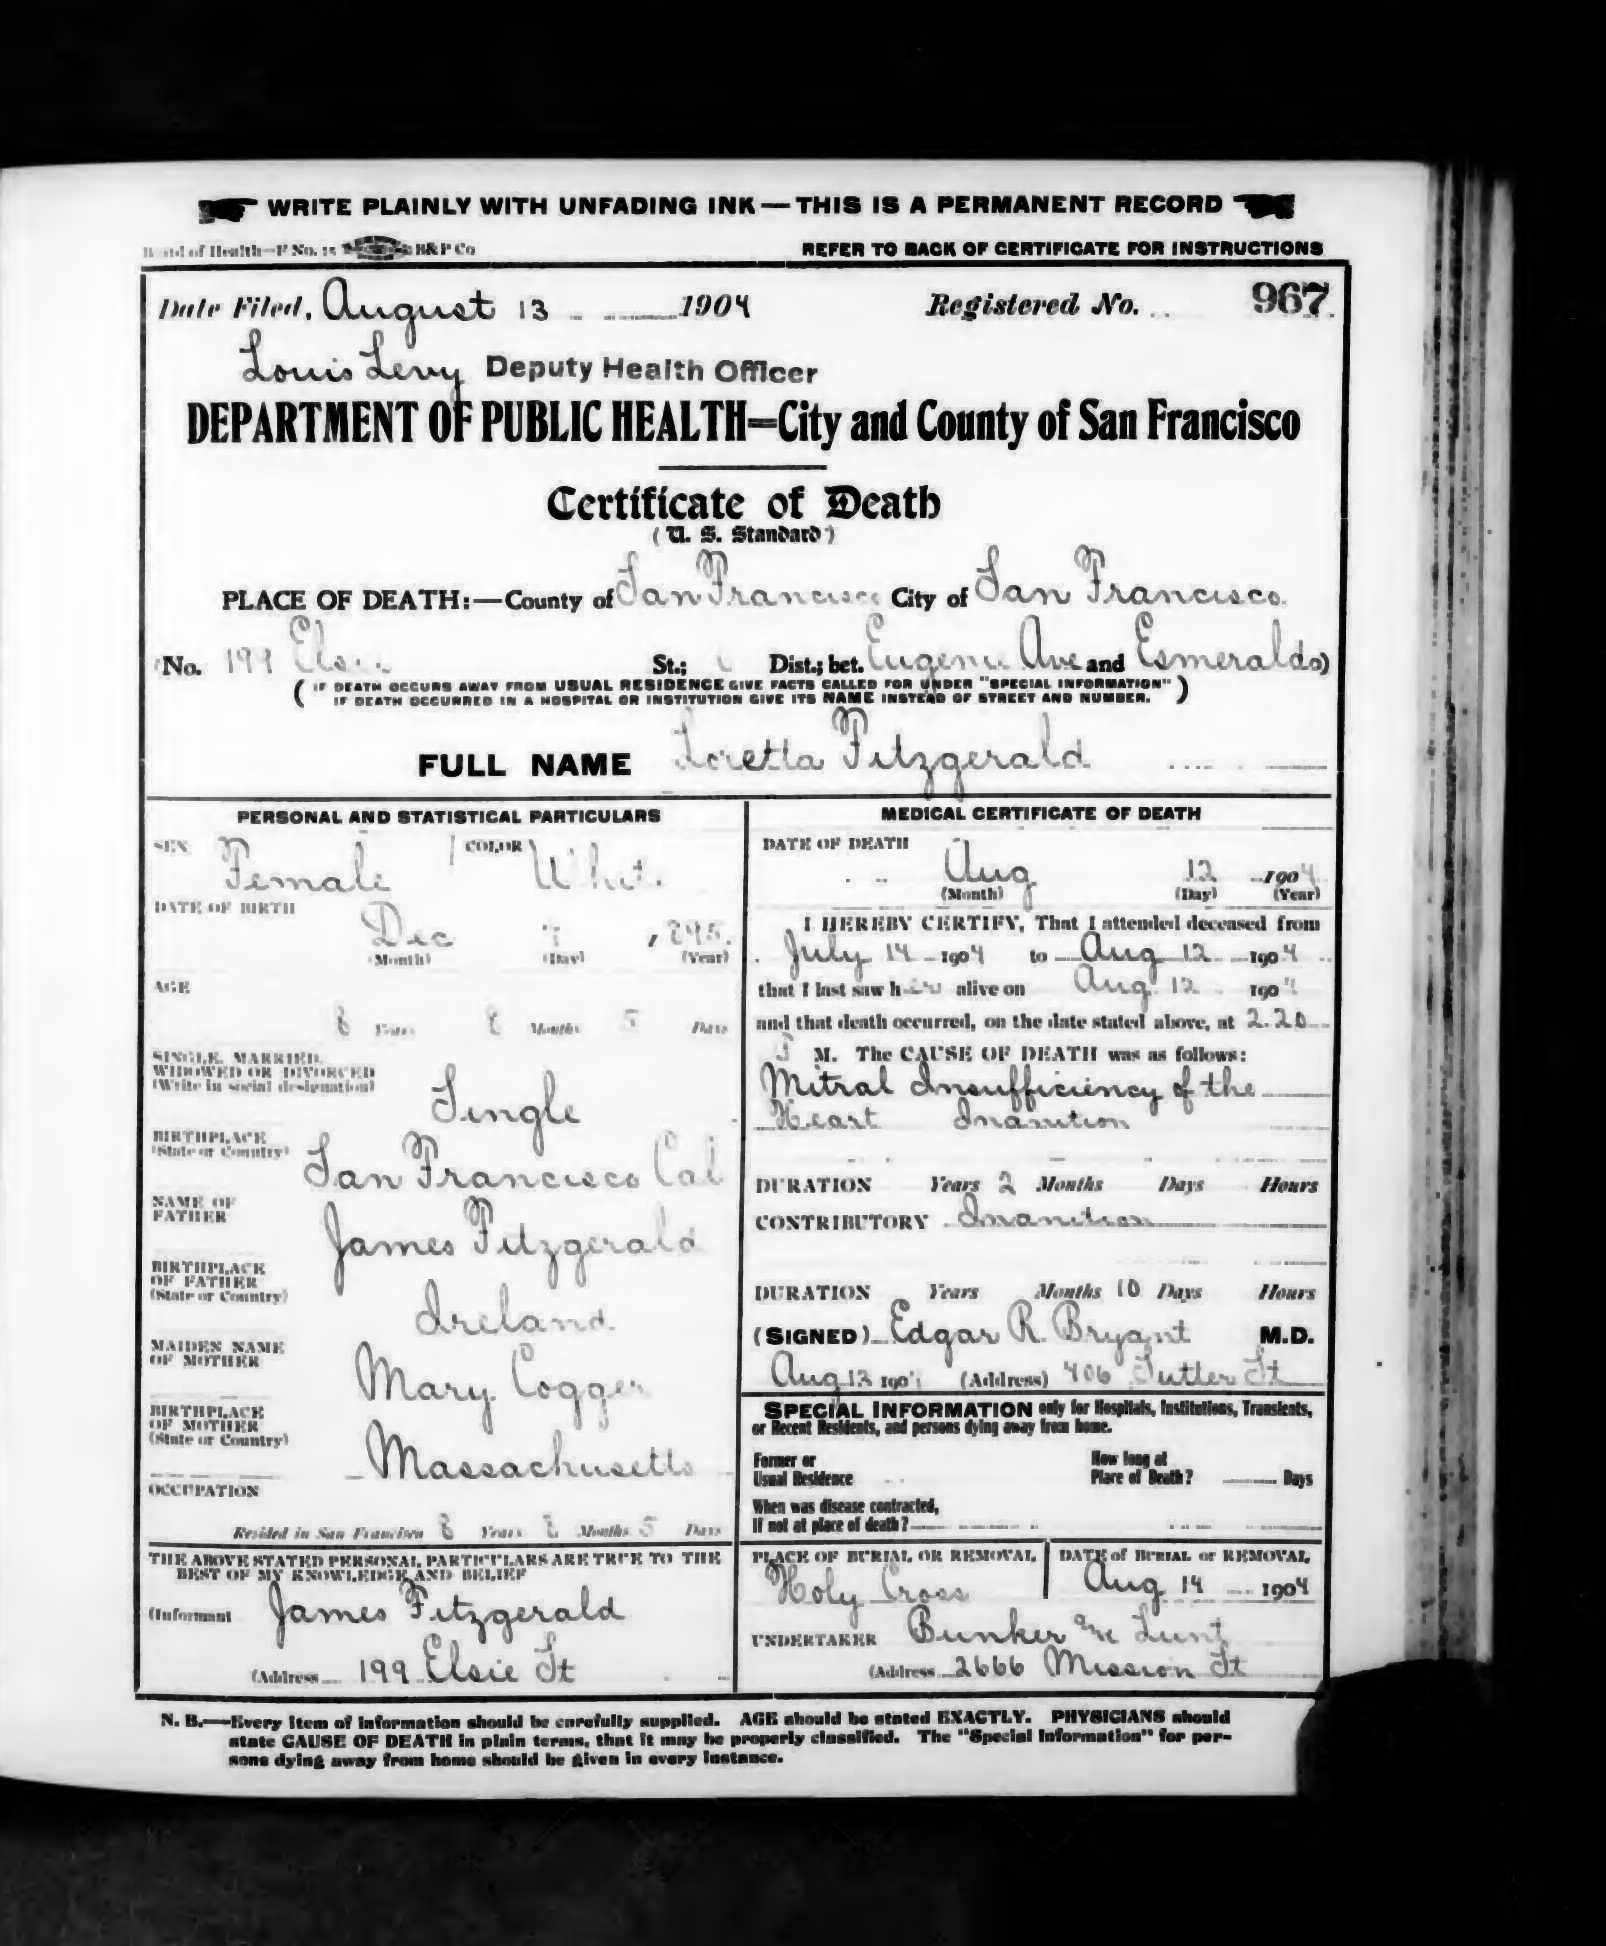 WRITE PLAINLY WITH UNFADING INK—THIS IS A PERMANENT RECORD
Board of Health—F No. 15 B&P Co
REFER TO BACK OF CERTIFICATE FOR INSTRUCTIONS
Date Filed, August 13 1904 Registered No. 967
Louis Levy Deputy Health Officer
DEPARTMENT OF PUBLIC HEALTH=City and County of San Francisco
Certificate of Death
(U. S. Standard)
PLACE OF DEATH:—County of San Francisco City of San Francisco
(No. 199 Elsie St.; Dist.; bet. Eugenie Ave and Esmeralda)
(IF DEATH OCCURS AWAY FROM USUAL RESIDENCE GIVE FACTS CALLED FOR UNDER "SPECIAL INFORMATION"
IF DEATH OCCURRED IN A HOSPITAL OR INSTITUTION GIVE ITS NAME INSTEAD OF STREET AND NUMBER.)
FULL NAME Loretta Fitzgerald
PERSONAL AND STATISTICAL PARTICULARS
SEX Female COLOR White
DATE OF BIRTH
Dec 7 1895
(Month) (Day) (Year)
AGE
8 Years 8 Months 5 Days
SINGLE, MARRIED,
WIDOWED OR DIVORCED
(Write in social designation)
Single
BIRTHPLACE
(State or Country)
San Francisco Cal
NAME OF
FATHER
James Fitzgerald
BIRTHPLACE
OF FATHER
(State or Country)
Ireland
MAIDEN NAME
OF MOTHER
Mary Cogger
BIRTHPLACE
OF MOTHER
(State or Country)
Massachusetts
OCCUPATION
Resided in San Francisco 8 Years 8 Months 5 Days
THE ABOVE STATED PERSONAL PARTICULARS ARE TRUE TO THE
BEST OF MY KNOWLEDGE AND BELIEF
(Informant James Fitzgerald
(Address 199 Elsie St
MEDICAL CERTIFICATE OF DEATH
DATE OF DEATH
Aug 12 1904
(Month) (Day) (Year)
I HEREBY CERTIFY, That I attended deceased from
July 14 1904 to Aug 12 1904
that I last saw her alive on Aug 12 1904
and that death occurred, on the date stated above, at 2.20
M. The CAUSE OF DEATH was as follows:
Mitral Insufficiency of the
Heart Inanition
DURATION Years 2 Months Days Hours
CONTRIBUTORY Inanition
DURATION Years Months 10 Days Hours
(SIGNED) Edgar R. Bryant M.D.
Aug 12 1904 (Address) 406 Sutter St
SPECIAL INFORMATION only for Hospitals, Institutions, Transients,
or Recent Residents, and persons dying away from home.
Former or
Usual Residence
How long at
Place of Death? Days
When was disease contracted,
If not at place of death?
PLACE OF BURIAL OR REMOVAL
Holy Cross
DATE of BURIAL or REMOVAL
Aug 14 1904
UNDERTAKER Bunker & Lunt
(Address 2666 Mission St
N. B.—Every item of information should be carefully supplied. AGE should be stated EXACTLY. PHYSICIANS should
state CAUSE OF DEATH in plain terms, that it may be properly classified. The "Special Information" for per-
sons dying away from home should be given in every instance.